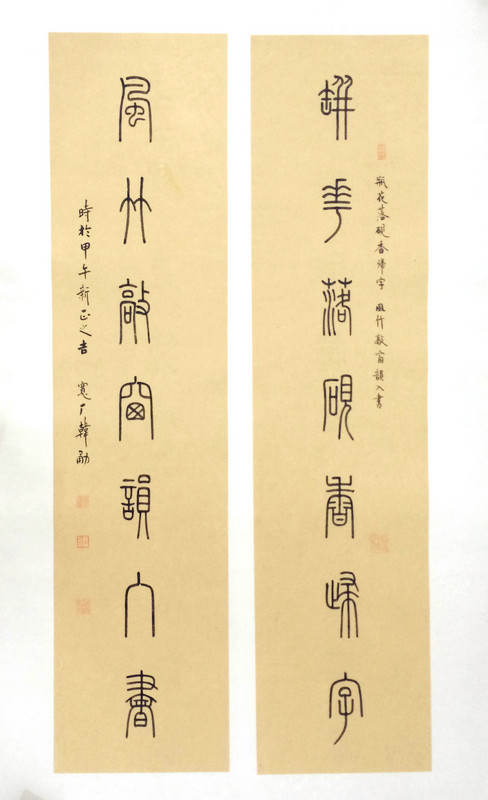 缾花落硯香歸字
瓶花落硯香歸字 風竹敲窗韻入書
風竹敲窗韻入書
時於甲午新正之吉 寬厂韓勇